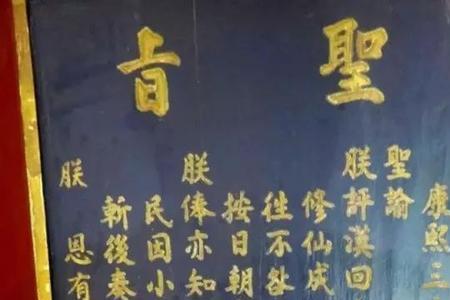 聖旨
康熙三
聖諭
朕評漢回
修仙成
徃不咎
按日朝
朕俸亦知
民因小
斬後奏
朕恩有